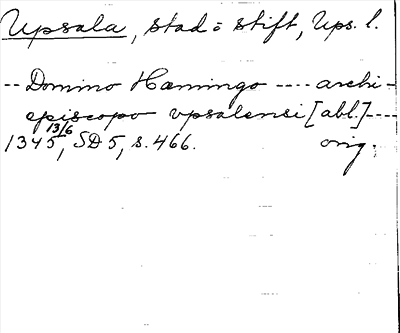 Upsala, stad o stift, Ups. l.
-- Domino Hemingo ---- archi-
episcopo vpsalensi [abl.] ----
1345 13/6, SD 5, s. 466. orig.